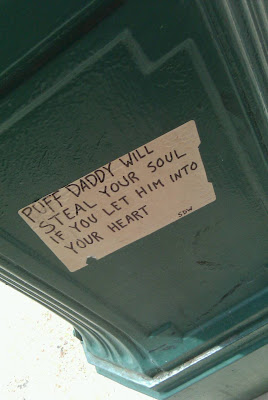 PUFF DADDY WILL
STEAL YOUR SOUL
IF YOU LET HIM INTO
YOUR HEART
SDW